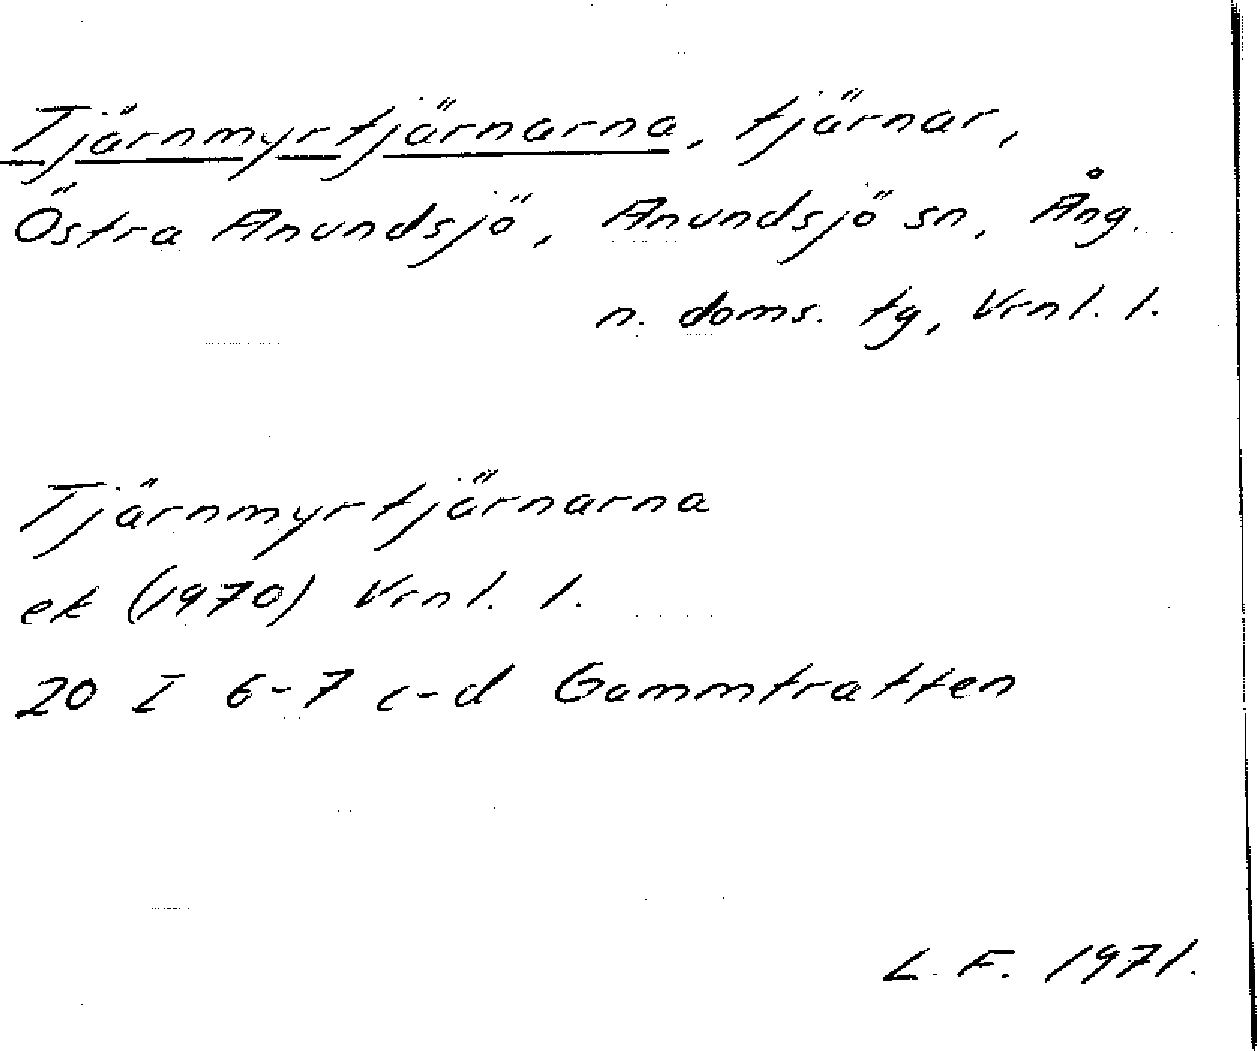 Tjärnmyrtjärnarna, tjärnar,
Östra Anundsjö, Anundsjö sn, Ång.
n. doms. tg, Vrnl. l.
Tjärnmyrtjärnarna
ek (1970) Vrnl. l.
20 I 6-7 c-d Gammtratten
L. F. 1971.